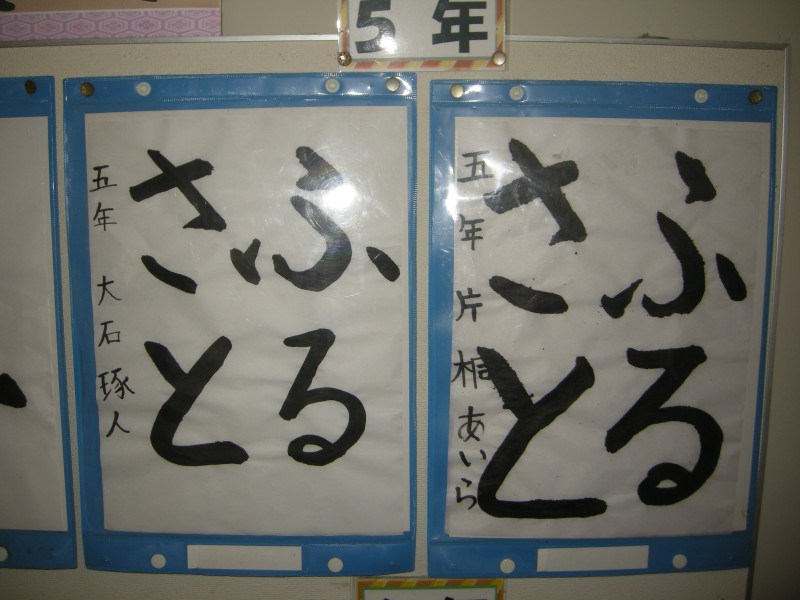 5年
ふる
さと
五年 片桐あいら
ふる
さと
五年 大石琢人